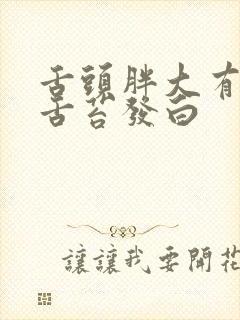 舌頭胖大有
舌苔發白
讓讓我要開花